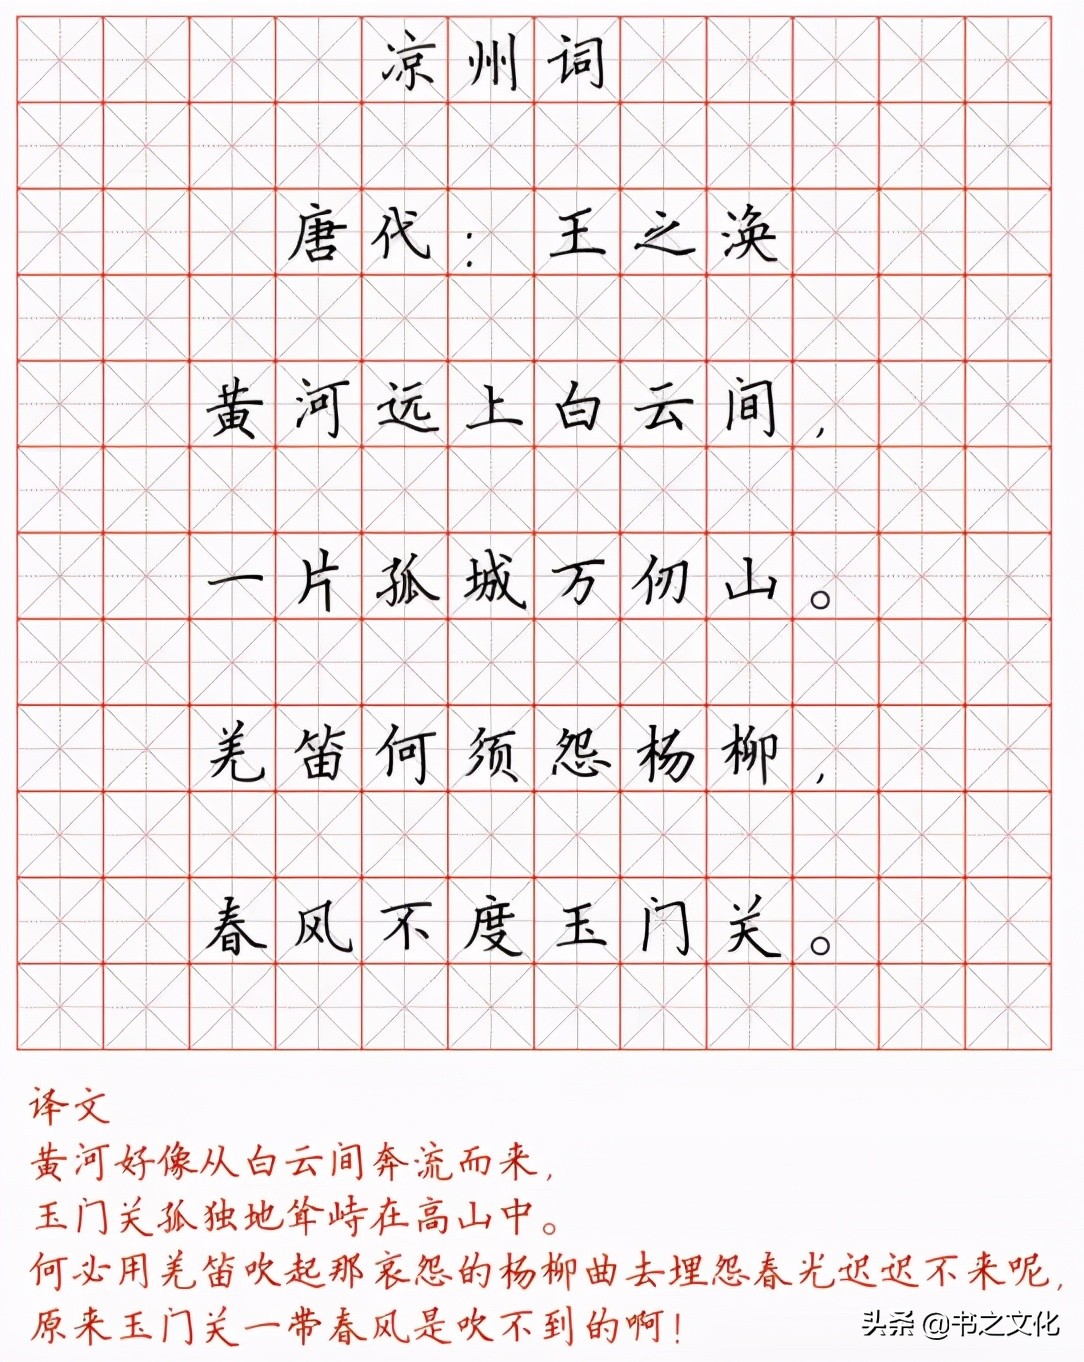 凉州词
唐代：王之涣
黄河远上白云间，
一片孤城万仞山。
羌笛何须怨杨柳，
春风不度玉门关。
译文
黄河好像从白云间奔流而来，
玉门关孤独地耸峙在高山中。
何必用羌笛吹起那哀怨的杨柳曲去埋怨春光迟迟不来呢，
原来玉门关一带春风是吹不到的啊！
头条 @书之文化